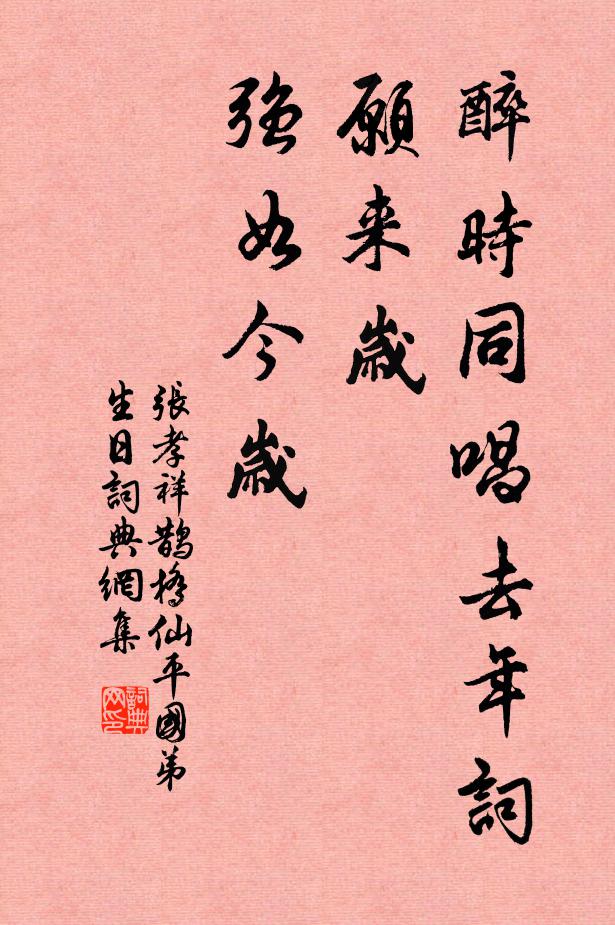 醉時同唱去年詞
願来歲
強如今歲
張孝祥鵲橋仙平國弟
生日詞典網集
詞典
网印